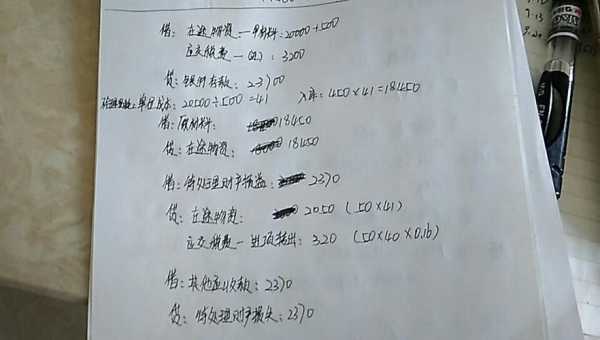 借：在途物资—甲材料：20000+500
应交税费—(进)：3200
贷：银行存款：23700
单位成本：20500÷500=41 入库：450×41=18450
借：原材料：18450
贷：在途物资：18450
借：待处理财产损益：2370
贷：在途物资：2050（50×41）
应交税费—进项转出：320（50×40×0.16）
借：其他应收款：2370
贷：待处理财产损失：2370